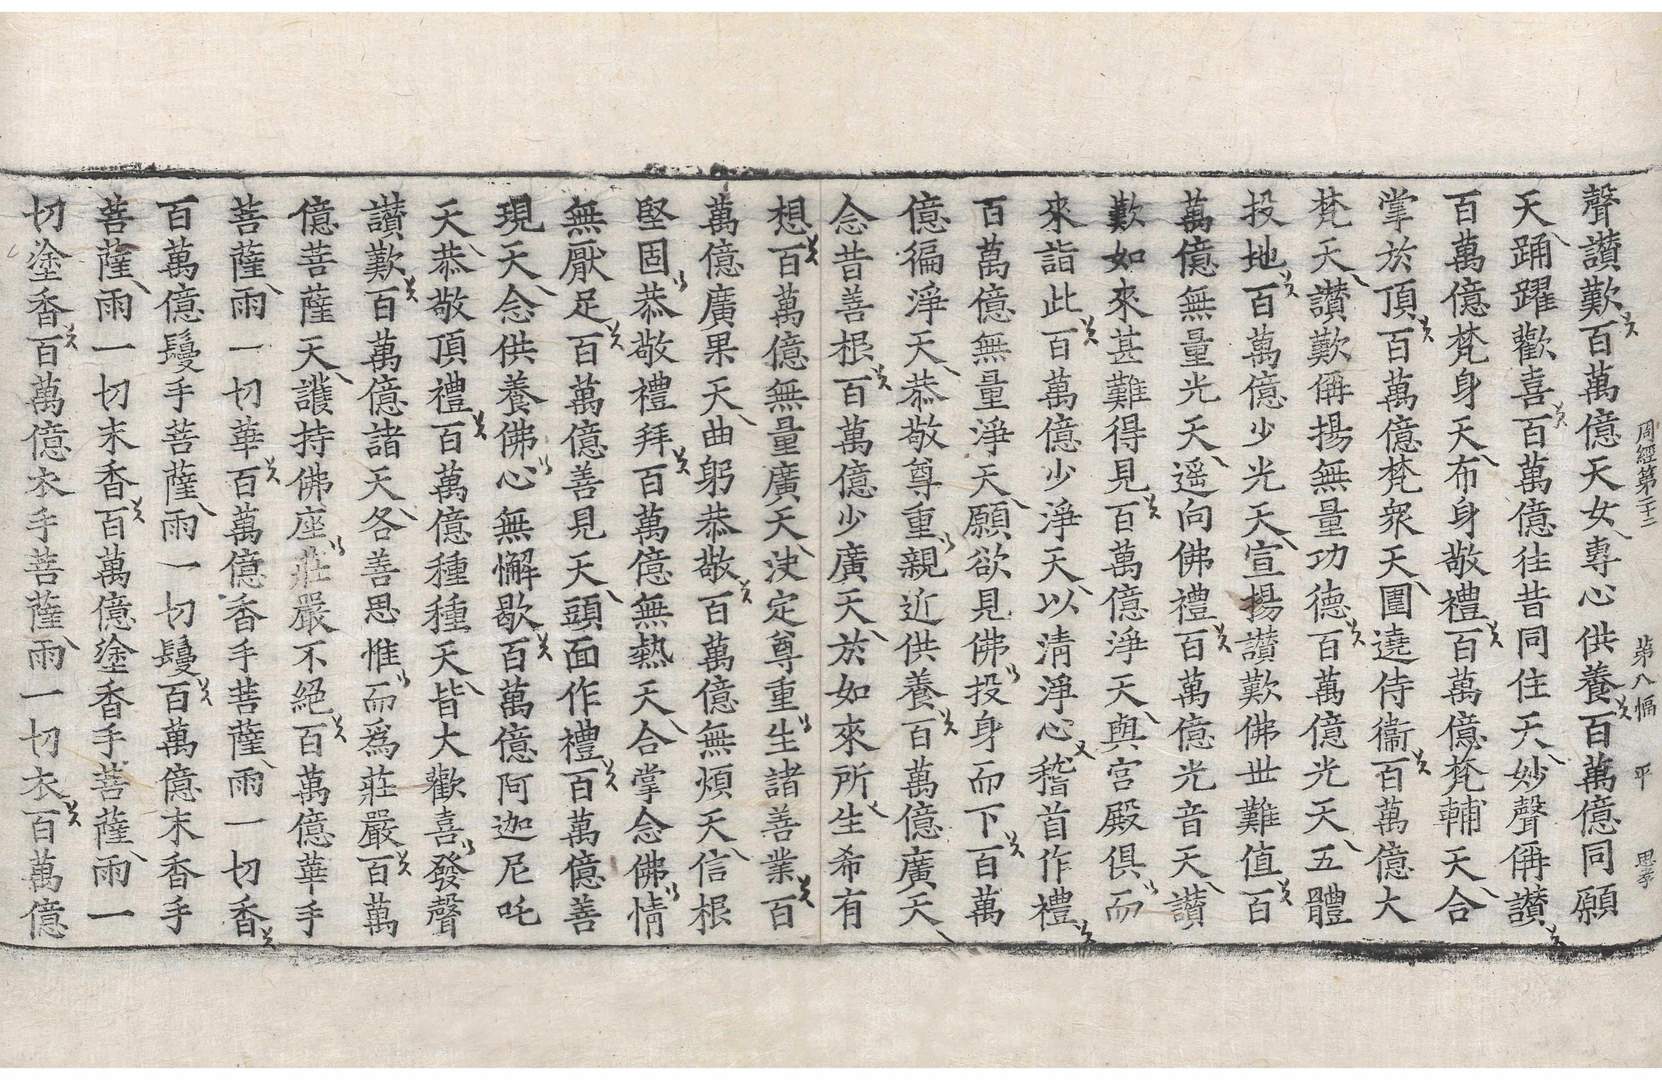 周經第二十二 第八幅 平 思孝
聲讃歎百萬億天女專心供養百萬億同願
天踊躍歡喜百萬億往昔同住天妙聲偁讃
百萬億梵身天布身敬禮百萬億梵輔天合
掌於頂百萬億梵衆天圍遶侍衞百萬億大
梵天讃歎偁揚無量功德百萬億光天五體
投地百萬億少光天宣揚讃歎佛世難值百
萬億無量光天遥向佛禮百萬億光音天讃
歎如來甚難得見百萬億淨天與宮殿俱而
來詣此百萬億少淨天以清淨心稽首作禮
百萬億無量淨天願欲見佛投身而下百萬
億徧淨天恭敬尊重親近供養百萬億廣天
念昔善根百萬億少廣天於如來所生希有
想百萬億無量廣天決定尊重生諸善業百
萬億廣果天曲躬恭敬百萬億無煩天信根
堅固恭敬禮拜百萬億無熱天合掌念佛情
無厭足百萬億善見天頭面作禮百萬億善
現天念供養佛心無懈歇百萬億阿迦尼吒
天恭敬頂禮百萬億種種天皆大歡喜發聲
讃歎百萬億諸天各善思惟而爲莊嚴百萬
億菩薩天護持佛座莊嚴不絕百萬億華手
菩薩雨一切華百萬億香手菩薩雨一切香
百萬億鬘手菩薩雨一切鬘百萬億末香手
菩薩雨一切末香百萬億塗香手菩薩雨一
切塗香百萬億衣手菩薩雨一切衣百萬億